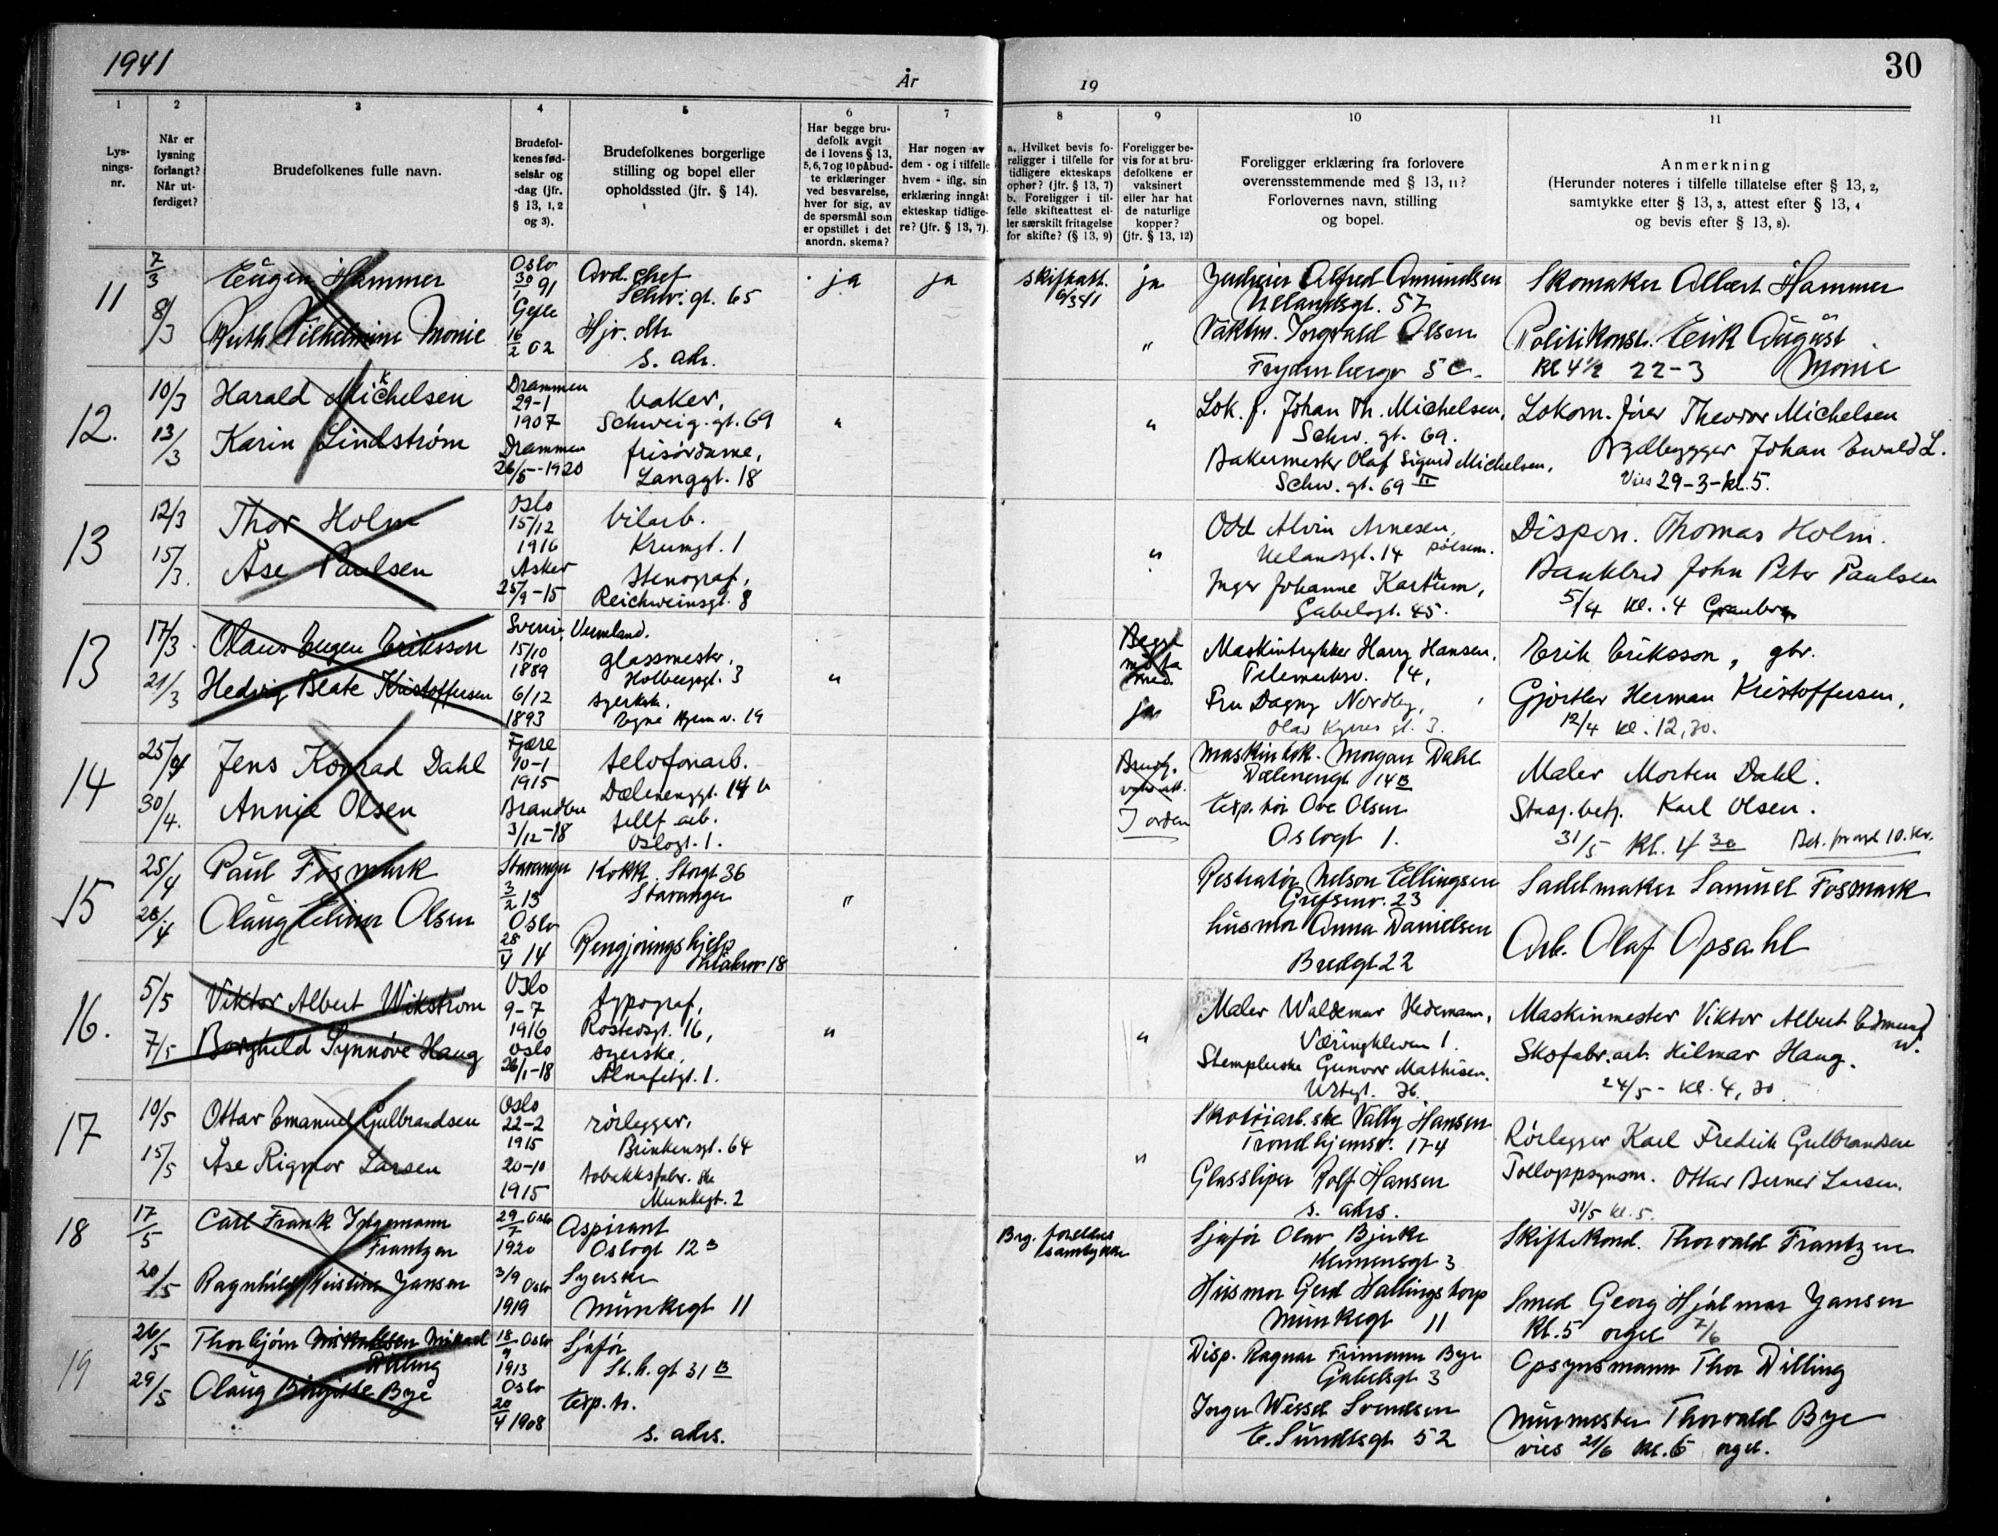 1941
År
19
30
1
2
3
4
5
6
7
8
9
10
11
Lys-
nings-
nr.
Når er
lysning
forlangt?
Når ut-
ferdiget?
Brudefolkenes fulle navn.
Brudefol-
kenes fød-
selsår og
-dag (jfr.
§ 13, 1, 2
og 3).
Brudefolkenes borgerlige
stilling og bopel eller
opholdssted (jfr. § 14).
Har begge bru-
defolk avgit
de i lovens § 13,
5, 6, 7 og 10 påbud-
te erklæringer
ved besvarelse,
hver for sig, av
de spørsmål som
er opstillet i det
anordn. skema?
Har nogen av
dem - og i tilfelle
hvem - iflg. sin
erklæring inngåt
ekteskap tidlige-
re? (jfr. § 13, 7).
a. Hvilket bevis fo-
religger i tilfelle for
tidligere ekteskaps
ophør? (jfr. § 13, 7)
b. Foreligger i til-
felle skifteattest el-
ler særskilt fritagelse
for skifte? (§ 13, 9)
Foreligger be-
vis for at bru-
defolkene er
vaksinert
eller har hat
de naturlige
kopper?
(jfr. § 13, 12)
Foreligger erklæring fra forlovere
overensstemmende med § 13, 11?
Forlovernes navn, stilling
og bopel.
Anmerkning
(Herunder noteres i tilfelle tillatelse efter § 13, 2,
samtykke efter § 13, 3, attest efter § 13, 4
og bevis efter § 13, 8).
11
7/3
8/3
Eugen Hammer
Ruth Vilhelmine Monie
Oslo
30/1 91
Gefle
16/2 02
Avd. chef
Schw. gt. 65
Hjv. dtr
s. adr.
ja
ja
skifteatt.
6/3 41
ja
"
Alfred Amundsen
Uelandsgt. 57
Vaktm. Ingvald Olsen
Frydenberggt 5 C.
Skomaker Albert Hammer
Politikonst. Erik August
Monie
Kl 4 1/2 22-3
12.
10/3
13/3
Harald Mickelsen
Karin Lindstrøm
Drammen
29-1
1907
Drammen
26/5-1920
baker,
Schweig. gt. 69
frisørdame,
Langgt. 18
"
"
Lok. f. Johan Th. Michelsen,
Schw. gt. 69.
Bakermester Olaf Sigurd Michelsen,
Schw. gt. 69 II
Lokom. fører Theodor Michelsen
Johan Ewald L.
Vies 29-3-kl. 5.
13
12/3
15/3.
Thor Holm
Åse Paulsen
Oslo
15/12
1916
Asker
25/9-15
bilarb.
Krumgt. 1
Stenograf,
Reichweinsgt. 8
"
Odd Alvin Arnesen,
Uelandsgt. 14 pølsem.
Inger Johanne Kartum,
Gabelsgt. 45.
Dispon. Thomas Holm.
John Peter Paulsen
5/4 kl. 4
13
17/3
21/3
Olaus Eugen Eriksson
Hedvig Beate Kristoffersen
Sverie, Vermland.
15/10
1889
6/12
1893
glassmester,
Holbergsgt. 3
syerske,
"
Begge
ja
Maskintrykker Harry Hansen,
Telemarksv. 14,
Fru Dagny Nordby,
Olav Kyrres gt. 3.
Erik Eriksson, gbr.
Gjørtler Herman Kristoffersen,
12/4 kl. 12,30.
14
25/4
30/4.
Jens Konrad Dahl
Annie Olsen
Fjære
10-1
1915
Brandbu
3/12-18
telefonarb.
Dælenenggt. 14 b
telef. arb.
Oslogt. 1.
I orden
Maskinlok. Morgan Dahl
Dælenengt 14 B
Exp. tør Ove Olsen
Oslogt 1.
Maler Morten Dahl.
Stasj. betj. Karl Olsen.
31/5 Kl. 4 30
10. kr.
15
25/4
28/4
Paul Fosmark
Olaug Elinor Olsen
Stavanger
3/2 13
Oslo
28/4 14
Kokk Storgt 36
Stavanger
Rengjøringshjelp
"
Nelson Ellingsen
Grefsenv. 23
husmor Anna Danielsen
Bredgt 22
Sadelmaker Samuel Fosmark
Arb. Olaf Opsahl
16.
5/5
7/5
Viktor Albert Wikstrøm
Borghild Synnøve Haug
Oslo
9-7
1916
Oslo
26/1-18
typograf,
Rostedsgt. 16,
syerske,
Alnafetgt. 1.
"
"
Maler Waldemar Hedemann,
Væringkleven 1.
Stemplerske Gunvor Mathisen.
Urtegt. 36.
Maskinmester Viktor Albert Edmund
W.
Skofabr. arb. Hilmar Haug.
24/5 - kl. 4,30
17
10/5
15/5
Ottar Emanuel Gulbrandsen
Åse Rigmor Larsen
Oslo
22-2
1915
20-10
1915
rørlegger,
Brinkensgt. 64
tobakksfabr. ske
Munkegt. 2
"
Skotøiarb.ske Vally Hansen
Trondhjemsv. 174
Glassliper Rolf Hansen
s. adrs.
Rørlegger Karl Fredrik Gulbrandsen
Tolloppsynsm. Ottar Berner Larsen.
31/5 kl. 5.
18
17/5
20/5
Carl Frank Ingemann
Frantzen
Ragnhild Kristine Jansen
29/7 Oslo
1920
3/9 Oslo
1919
Aspirant
Oslogt 12 B
Syerske
Munkegt 11
Brg. foreldres
samtykke
Sjåfør Olav Bjerke
Klemensgt 3
Husmor Gerd Hallingstorp
Munkegt 11
Skiftekond. Thorvald Frantzen
Smed Georg Hjalmar Jansen
Kl. 5 orgel 7/6
19
26/5
29/5
Thorbjørn Mikael
Dilling
Olaug Birgitte Bye
Oslo
1913
Oslo
20/4 1908
Sjåfør
St. h. gt 31 B
Exp. tr.
s. adrs.
Disp. Ragnar Frimann Bye
Gabelsgt 3
Inger Wessel Svendsen
E. Sundtsgt 52
Opsynsmann Thor Dilling
Murmester Thorvald Bye
vies 21/6 kl. 6 orgel.